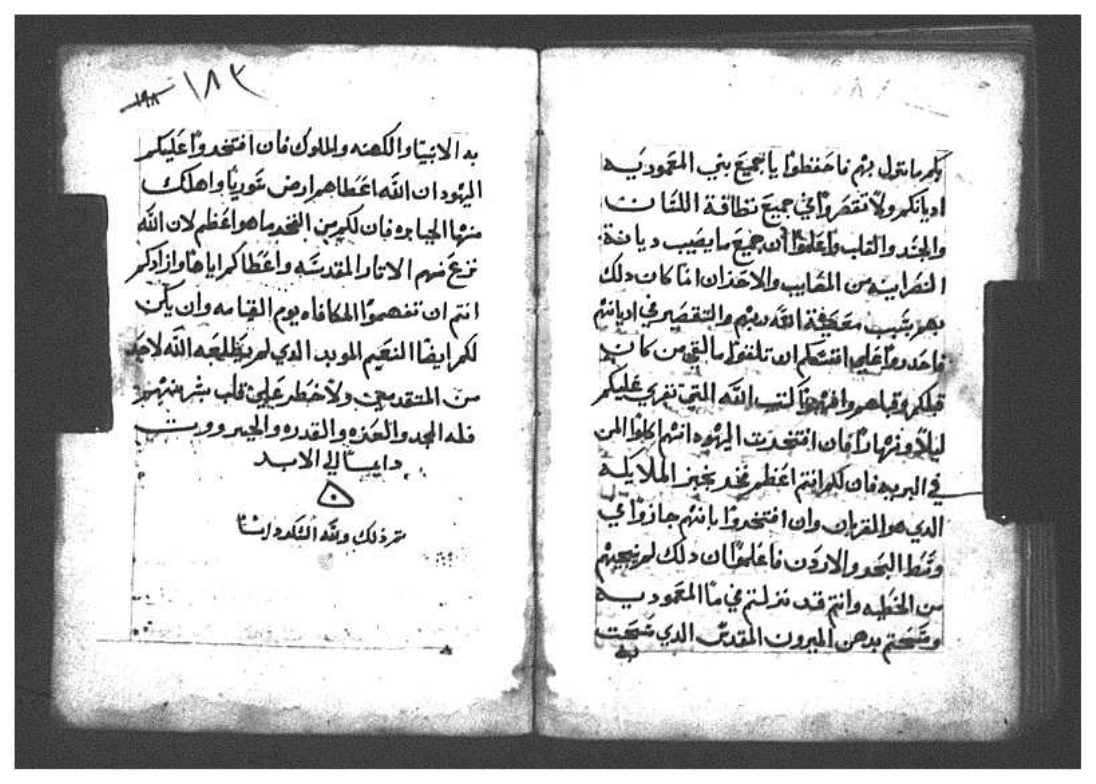 بكم ما نتول بهم فاحفظوا يا جميع بني المعموديه
اديانكم ولا تقصروا في جميع نظافة اللسان
والجسد والقلب واعلموا أن جميع ما يصيب ديانة
النصرانيه من المصايب والاحزان انما كان دلك
بهم بسبب معصية الله ربهم والتقصير في اديانهم
فاحدروا علي انفسكم ان تلقوا ما لقي من كان
قبلكم وافهموا كتب الله التي تقري عليكم
ليلاً ونهاراً فان افتخرت اليهود انهم اكلوا المن
في البريه فان لكم انتم اعظم فخر بخبز الملايكه
الدي هو القربان وان افتخروا بانهم جازوا في
وسط البحر والاردن فاعلموا ان دلك لم ينجيهم
من الخطيه وانتم قد نزلتم في ما المعموديه
ومسحتم بدهن الميرون المقدس الدي مسحت
به
١٨٣
١٩٨
به الانبيا والكهنه والملوك فان افتخروا عليكم
اليهود ان الله اعطاهم ارض سوريا واهلك
منها الجبابره فان لكم من الفخر ما هو اعظم لان الله
نزع عنهم الاتار المقدسه واعطاكم اياها وازادكم
انتم ان تفهموا المكافاه يوم القيامه وان يكن
لكم ايضا النعيم الموبد الدي لم يطلعه الله لاحد
من المتقدمين ولا خطر علي قلب بشر منهم
فله المجد والعزه والقدره والجبروت
دايما الي الابد
تم ذلك ولله الشكر دايما